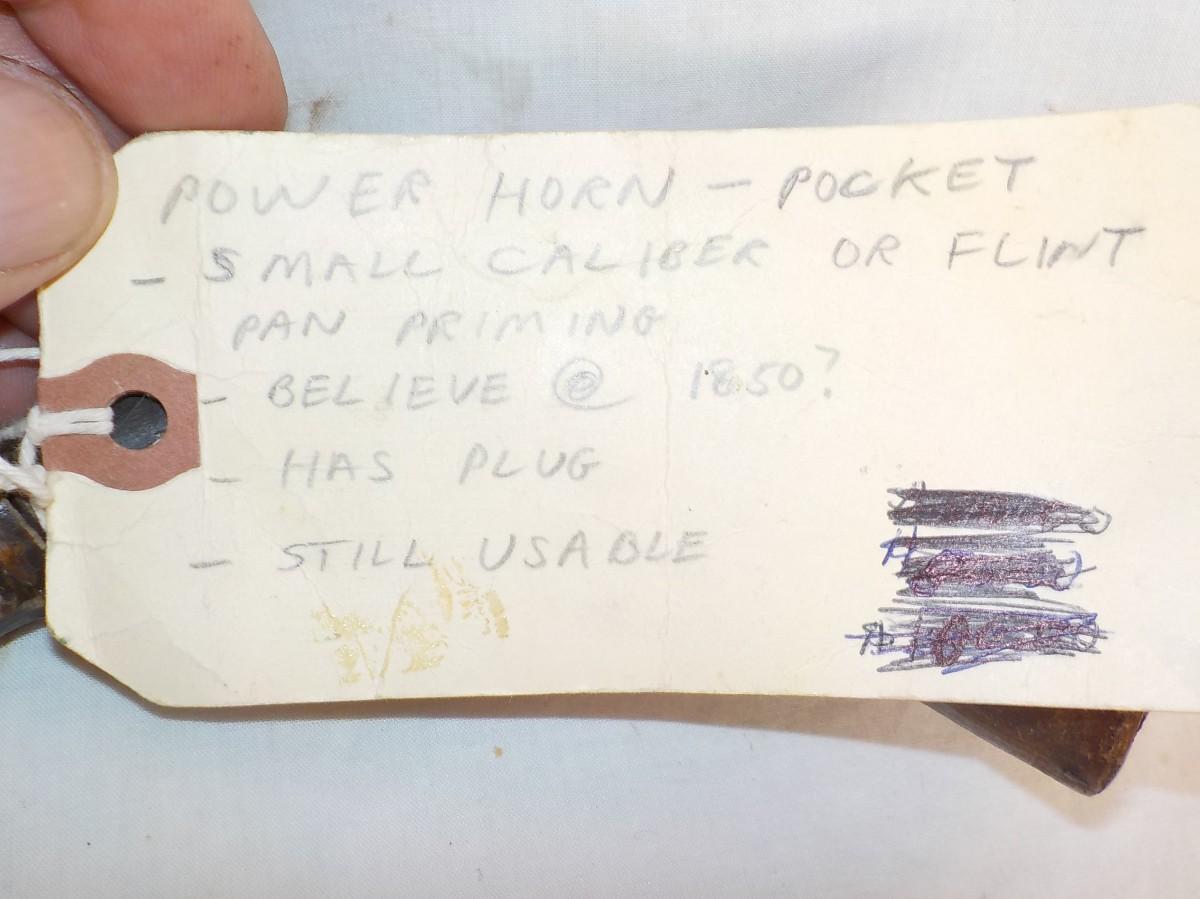 POWER HORN — POCKET
– SMALL CALIBER OR FLINT
PAN PRIMING
– BELIEVE @ 1850?
– HAS PLUG
– STILL USABLE